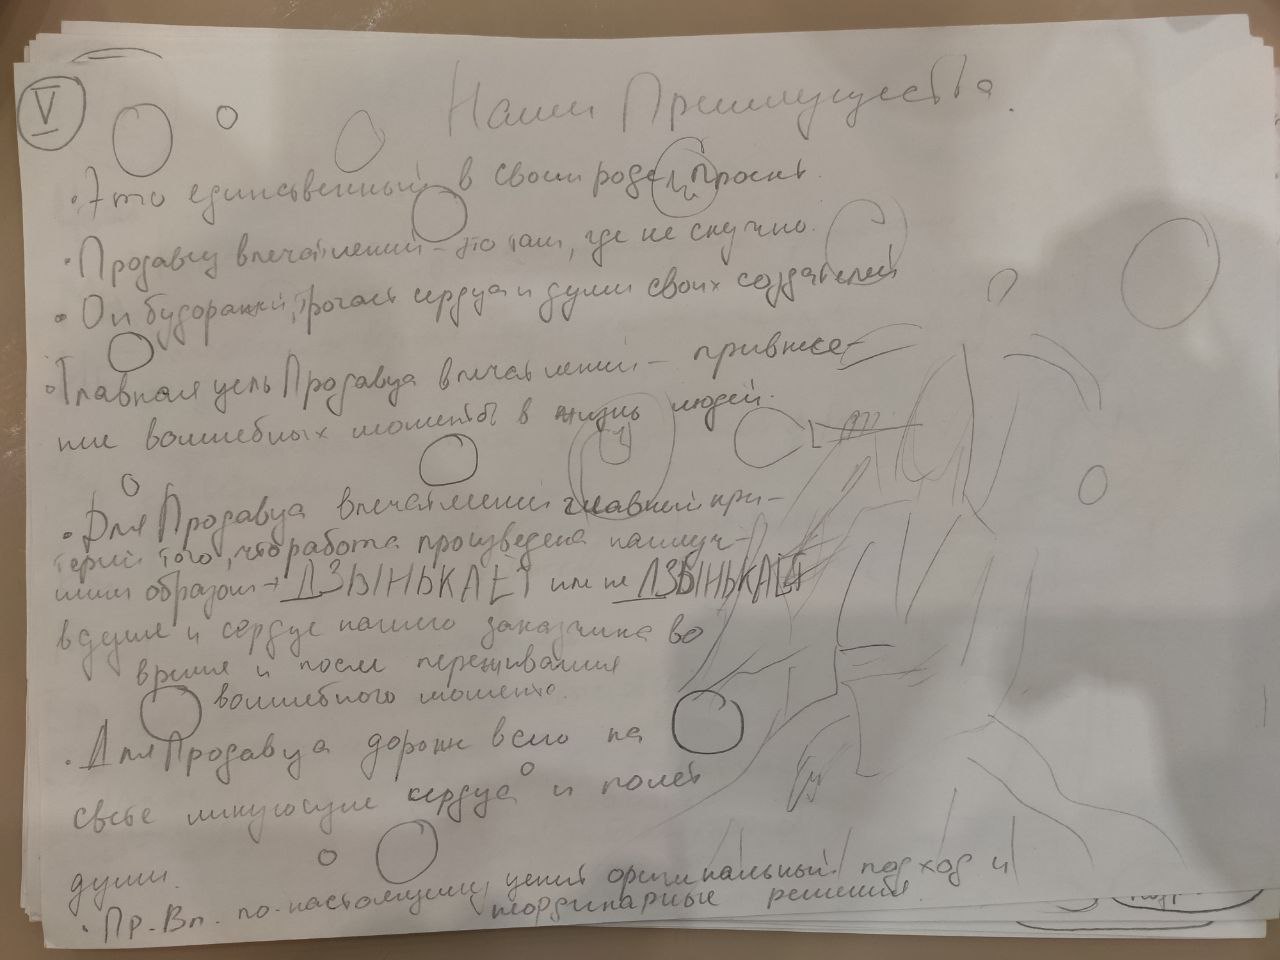 V
Наши Преимущества.
• Это единственный в своем роде проект.
• Продавец впечатлений – это там, где не скучно.
• Он будоражит, трогает сердца и души своих создателей
• Главная цель Продавца впечатлений – привнесе-
ние волшебных моментов в жизнь людей.
• Для Продавца впечатлений главный кри-
терий того, что работа произведена наилуч-
шим образом → ДЗЫНЬКАЕТ или не ДЗЫНЬКАЕТ
в душе и сердце нашего заказчика во
время и после переживания
волшебного момента.
• Для Продавца дороже всего на
свете ликующие сердца и полет
души.
• Пр. Вп. по-настоящему ценит оригинальный подход и
неординарные решения